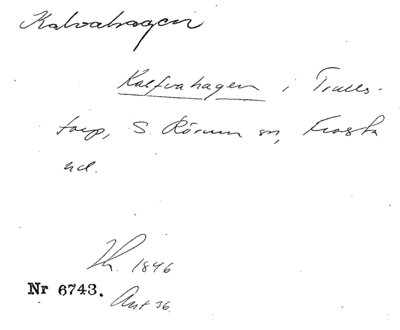 Kalvahagen
Kalfvahagen i Trulls-
torp, S. Rörum sn, Frosta
hd.
1846
Nr 6743. Ant 36